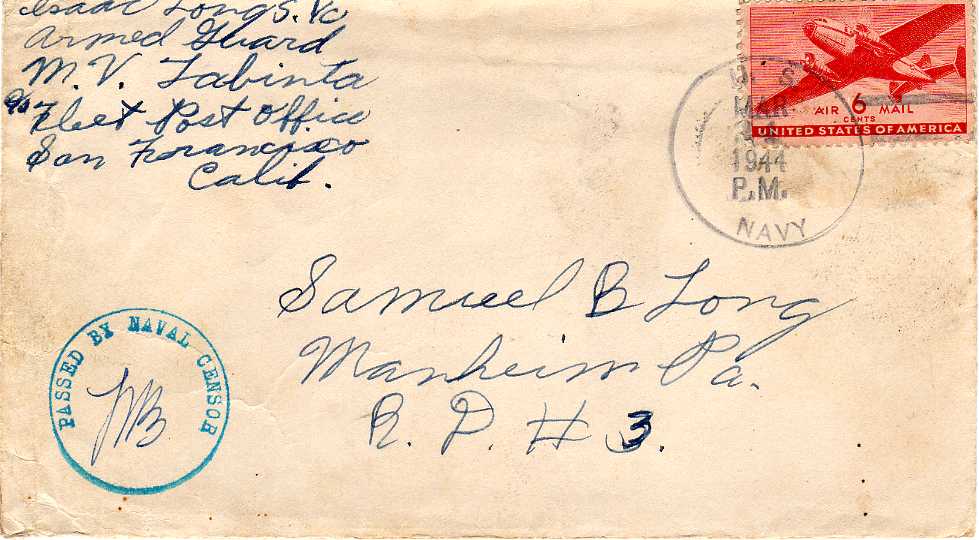 Isaac Long S. 1/c
Armed Guard
M. V. Tabinta
c/o Fleet Post Office
San Francisco
Calif.
AIR 6 MAIL
CENTS
UNITED STATES OF AMERICA
U. S.
MAR
1944
P.M.
NAVY
Samuel B Long
Manheim Pa.
R. D. # 3.
PASSED BY NAVAL CENSOR